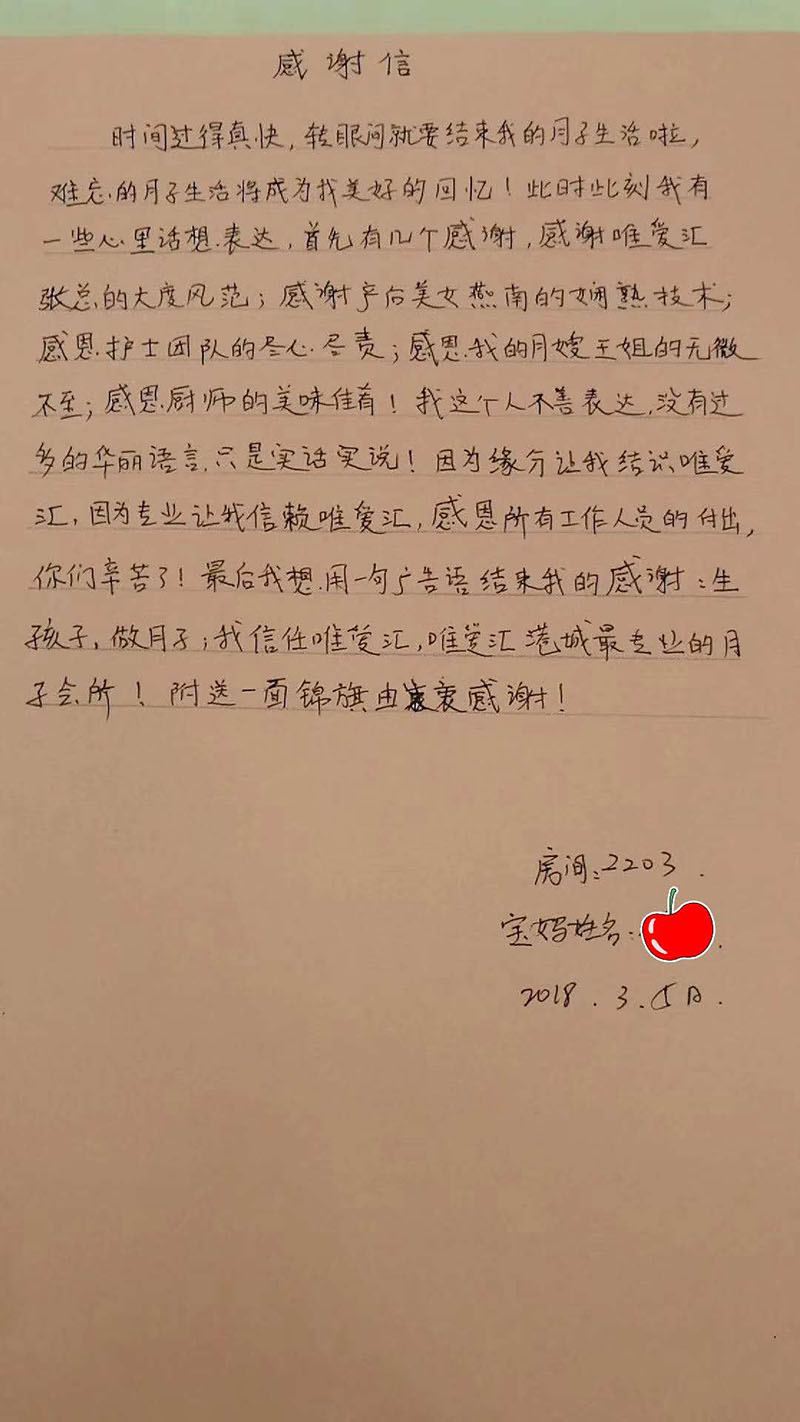 感谢信
时间过得真快,转眼间就要结束我的月子生活啦,
难忘的月子生活将成为我美好的回忆!此时此刻我有
一些心里话想表达,首先有几个感谢,感谢唯爱汇
张总的大度风范;感谢产后美女燕南的娴熟技术;
感恩护士团队的尽心尽责;感恩我的月嫂王姐的无微
不至;感恩厨师的美味佳肴!我这个人不善表达,没有过
多的华丽语言,只是实话实说!因为缘分让我结识唯爱
汇,因为专业让我信赖唯爱汇,感恩所有工作人员的付出,
你们辛苦了!最后我想用一句广告语结束我的感谢:生
孩子,做月子;我信任唯爱汇,唯爱汇港城最专业的月
子会所!附送一面锦旗由衷感谢!
房间:2203.
宝妈姓名:
2018.3.5日.